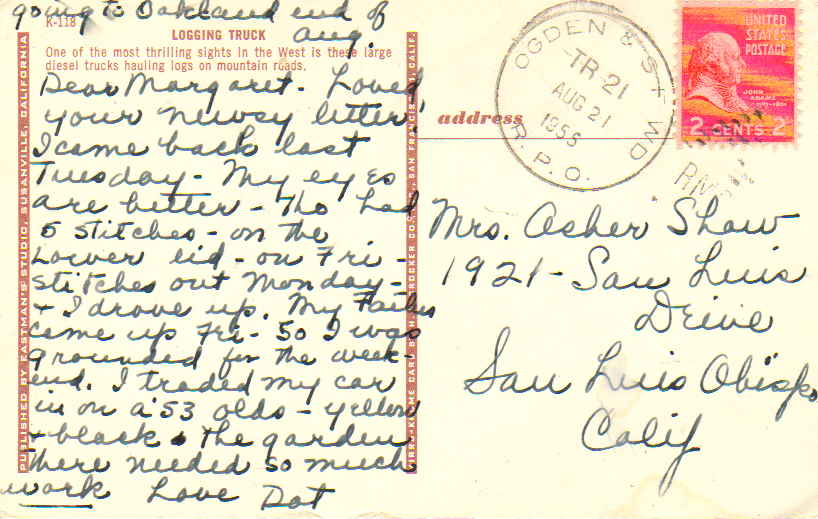 going to Oakland end of
Aug.
K-118
LOGGING TRUCK
One of the most thrilling sights in the West is these large
diesel trucks hauling logs on mountain roads.
Dear Margaret - Loved
your newsy letter!
I came back last
Tuesday - My eyes
are better - Tho had
5 stitches - on the
lower lid - on Fri -
stitches out Monday -
+ I drove up. My Father
came up Fri - so I was
grounded for the week-
end. I traded my car
in on a '53 olds - yellow
+ black & the garden
there needed so much
work Love Dot
PUBLISHED BY EASTMAN'S STUDIO, SUSANVILLE, CALIFORNIA
address
OGDEN & S F WD
TR 21
AUG 21
1955
R. P. O.
RM
UNITED
STATES
POSTAGE
JOHN
ADAMS
2 CENTS 2
Mrs. Asher Shaw
1921 - San Luis
Drive
San Luis Obispo
Calif